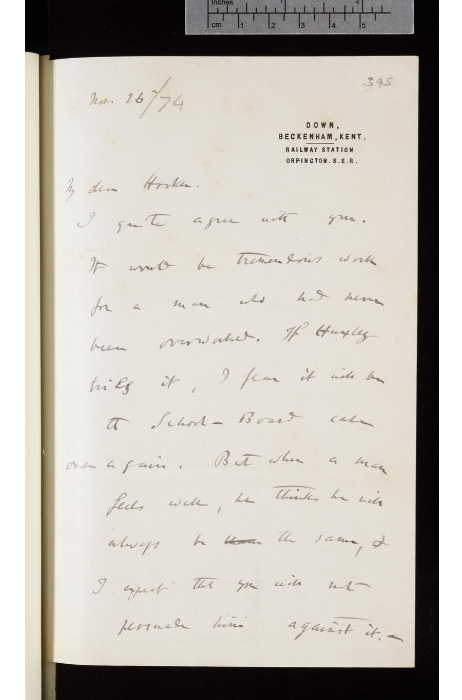 Inches 1 2 3
cm 1 2 3 4 5
395
Nov. 26/74
DOWN,
BECKENHAM, KENT.
RAILWAY STATION
ORPINGTON. S.E.R.
My dear Hooker.
I quite agree with you.
It would be tremendous work
for a man who had never
been overworked. If Huxley
tries it, I fear it will be
the School-Board case
over again. But when a man
feels well, he thinks he will
always be the same, &
I expect that you will not
persuade him against it.